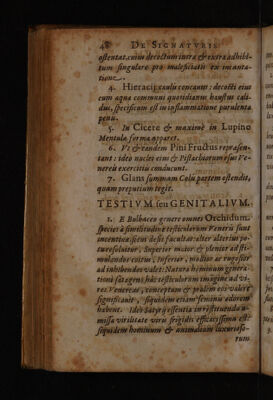 48 DE SIGNATVRIS
ostentat, cuius decoctum intra & extra adhibi-
tum singulare pro maleficiatis ex incanta-
tione.
4. Hieracij caulis concauus: decocti eius
cum aqua communi quotidianus haustus cali-
dus, specificum est in inflammatione purulenta
penis.
5. In Cicere & maximè in Lupino
Mentula forma apparet.
6. Vt & eandem Pini Fructus repræsen-
tant: ideo nuclei eius & Pistachiorum esus Ve-
nereis exercitiis conducunt.
7. Glans summam Colis partem ostendit,
quam preputium tegit.
TESTIVM seu GENITALIVM.
1. E Bulbaceo genere omnes Orchidum
species à similitudine testiculorum Veneris sunt
incentiua: sicut desit facultas: alter alterius po-
tu resoluitur, Superior maior & plenior ad sti-
mulandos coitus, Inferior, mollior ac rugosior
ad inhibendos valet: Natura hominum genera-
tioni satagens hâc testiculorum imagine ad vi-
res Venereas, conceptum & prolem eos valere
significauit, siquidem etiam seminis odorem
habent. Ideo Satyrij essentia in restituenda a-
missa virilitate viris frigidis efficacissima est:
siquidem hominum & animalium luxurioso-
rum